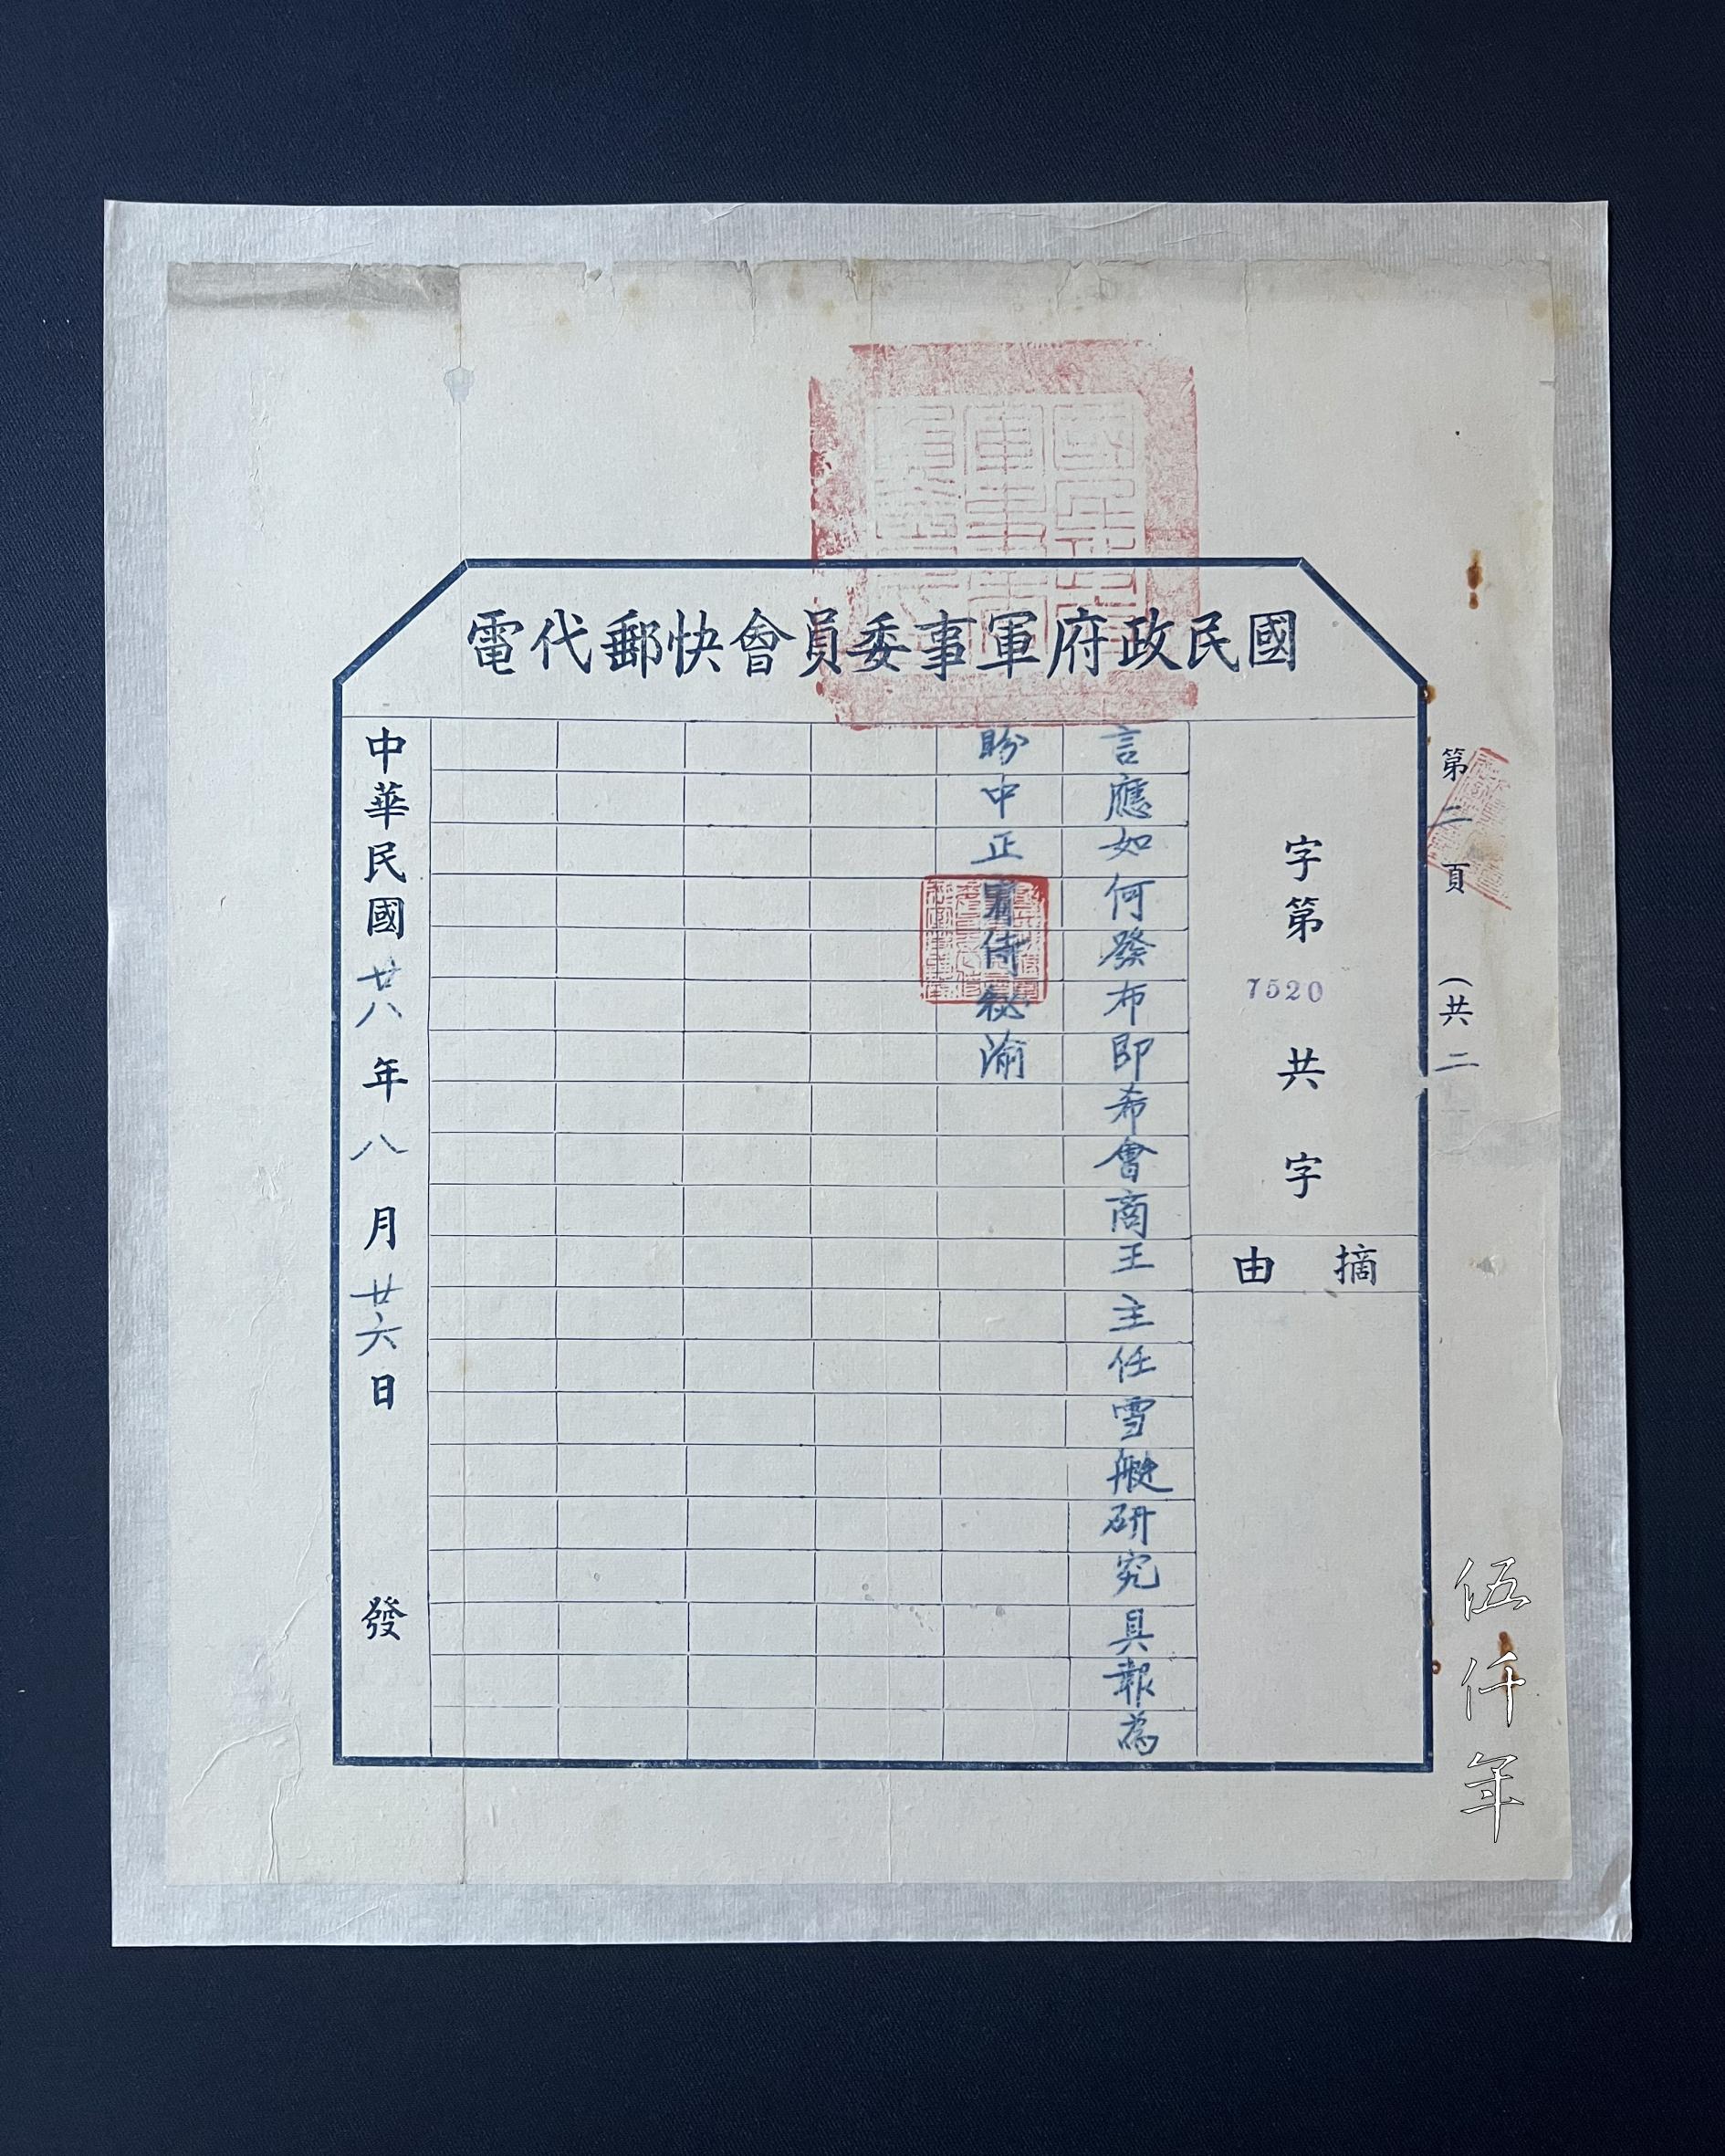 國民政府軍事委員會快郵代電
第二頁
(共二
字第7520
共字
摘由
言應如何發布即希會商王主任雪艇研究具報為
盼中正宥侍秘渝
中華民國廿八年八月廿六日發
伍仟年